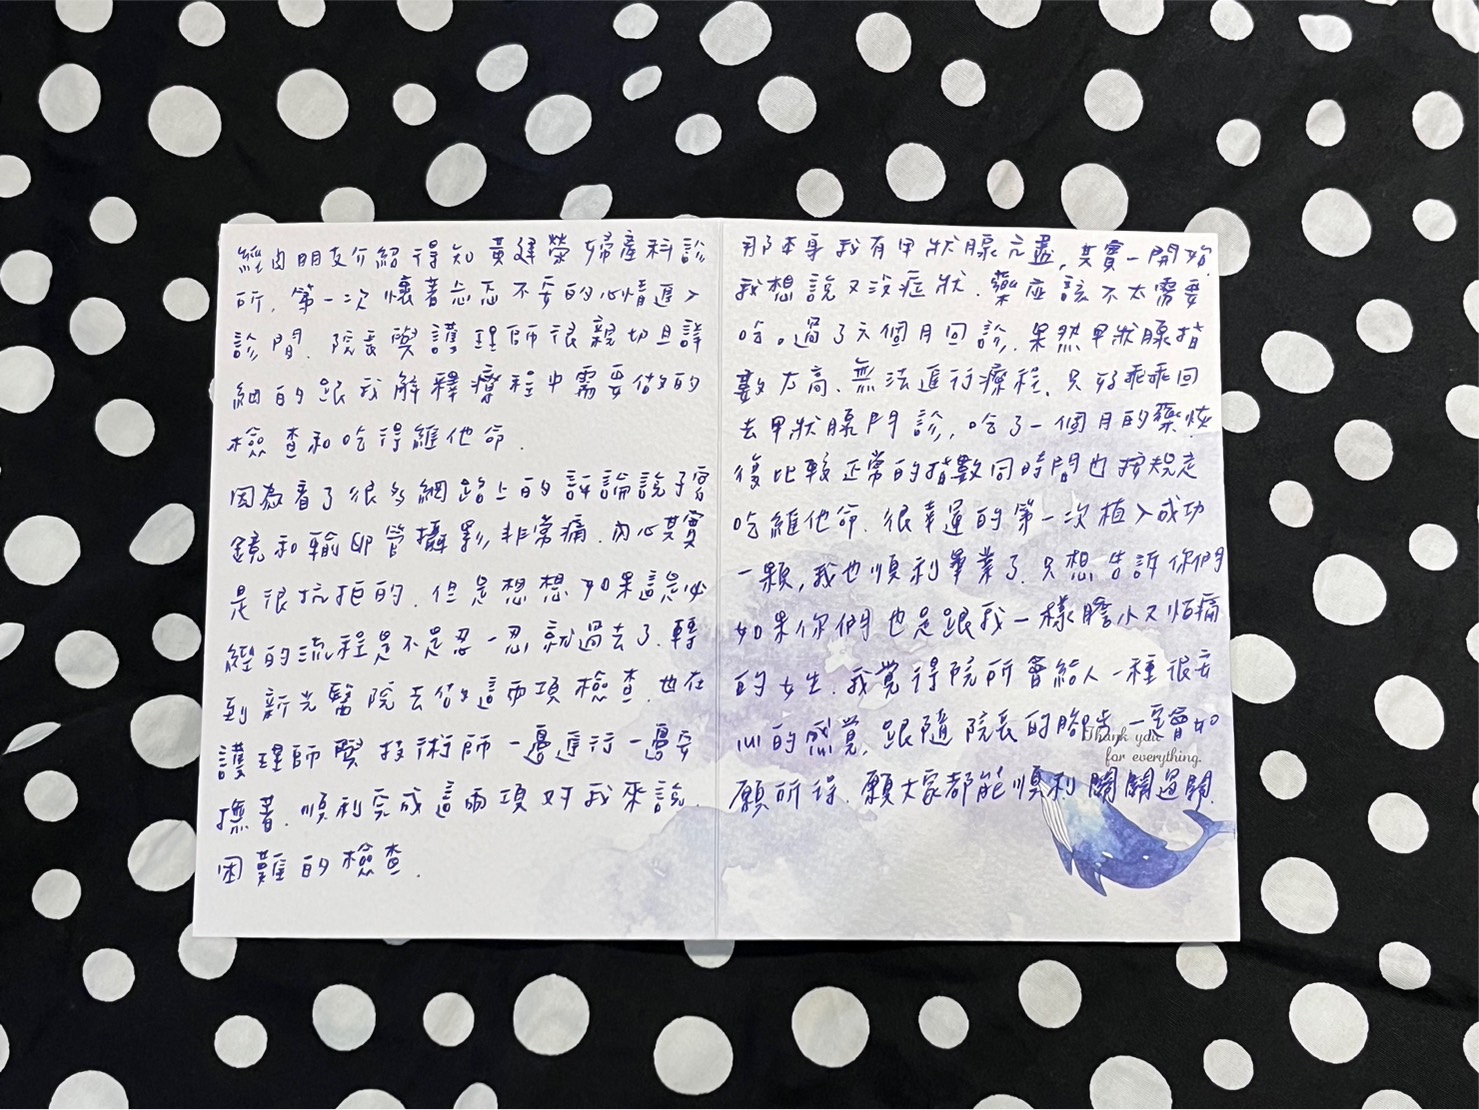 經由朋友介紹得知黃建榮婦產科診
所，第一次懷著忐忑不安的心情進入
診間．院長與護理師很親切且詳
細的跟我解釋療程中需要做的
檢查和吃得維他命．
因為看了很多網路上的評論說子宮
鏡和輸卵管攝影非常痛．內心其實
是很抗拒的．但是想想如果這是必
經的流程是不是忍一忍就過去了．轉
到新光醫院去做這兩項檢查．也在
護理師與技術師一邊進行一邊安
撫著．順利完成這兩項對我來說．
困難的檢查．
那本身我有甲狀腺亢盡，其實一開始
我想說又沒症狀．藥應該不太需要
吃。過了六個月回診，果然甲狀腺指
數太高．無法進行療程．只好乖乖回
去甲狀腺門診，吃了一個月的藥恢
復比較正常的指數同時間也按規定
吃維他命．很幸運的第一次植入成功
一顆，我也順利畢業了．只想告訴你們
如果你們也是跟我一樣膽小又怕痛
的女生．我覺得院所會給人一種很安
心的感覺．跟隨院長的腳步一定會如
願所得．願大家都能順利關關過關．
Thank you
for everything.